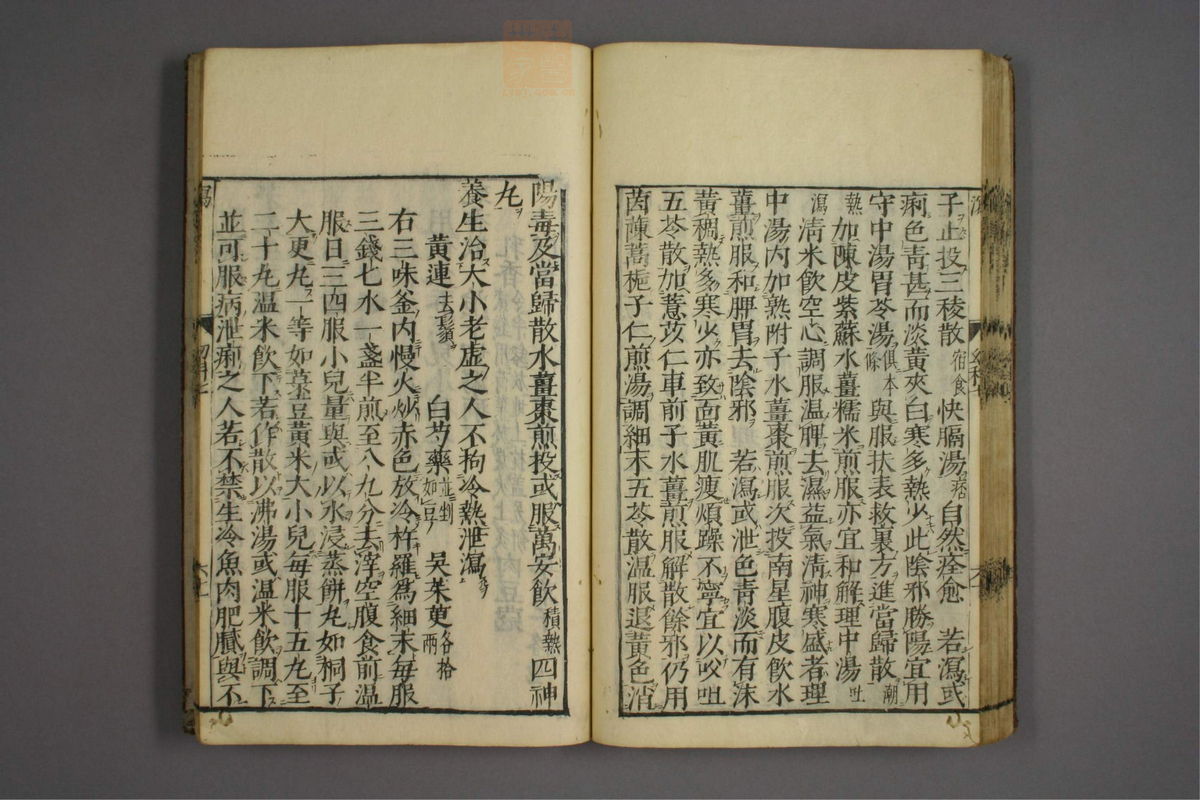 子止投三稜散宿食快膈湯痞自然痊愈 若瀉或
痢色青甚而淡黃夾白寒多熱少此陰邪勝陽宜用
守中湯胃苓湯俱本條與服扶表救裏方進當歸散潮
熱加陳皮紫蘇水薑糯米煎服亦宜和解理中湯吐
瀉清米飲空心調服温脾去濕益氣清神寒盛者理
中湯内加熟附子水薑棗煎服次投南星腹皮飲水
薑煎服和脾胃去陰邪 若瀉或泄色青淡而有沫
黃稠熱多寒少亦致面黃肌瘦煩躁不寧宜以㕮咀
五苓散加薏苡仁車前子水薑煎服解散餘邪仍用
茵蔯蒿梔子仁煎湯調細末五苓散温服退黃色消
陽毒及當歸散水薑棗煎投或服萬安飲積熱四神
丸
養生治大小老虚之人不拘冷熱泄瀉
黃連去鬚 白芍藥並剉如豆 吳茱萸各拾兩
右三味釜内慢火炒赤色放冷杵羅爲細末每服
三錢匕水一盞半煎至八九分去滓空腹食前温
服日三四服小兒量與或以水浸蒸餅丸如桐子
大更丸一等如菉豆黃米大小兒每服十五丸至
二十丸温米飲下若作散以沸湯或温米飲調下
並可服病泄痢之人若不禁生冷魚肉肥膩與不